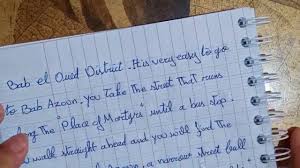 Bab el Oued District. It is very easy to go
to Bab Azoun. you Take the street that runs
long the "Place of Martyrs" until a bus stop.
you walk straight ahead and you will find the
a narrow street full